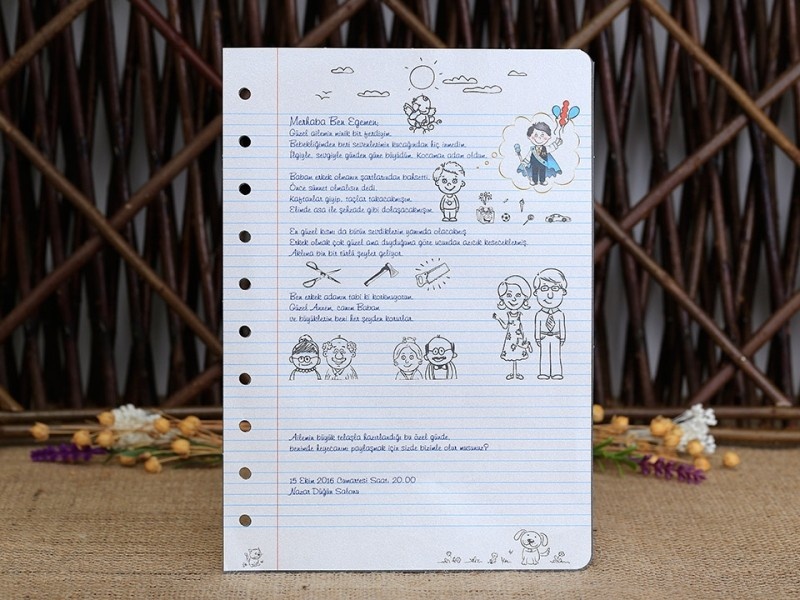 Merhaba Ben Egemen;
Güzel ailemin minik bir ferdiyim.
Bebekliğimden beri sevenlerimin kucağından hiç inmedim.
İlgiyle, sevgiyle günden güne büyüdüm. Kocaman adam oldum.
Babam erkek olmanın şartlarından bahsetti.
Önce sünnet olmalısın dedi.
Kaftanlar giyip, taçlar takacakmışım.
Elimde asa ile şehzade gibi dolaşacakmışım.
En güzel kısmı da bütün sevdiklerim yanımda olacakmış
Erkek olmak çok güzel ama duyduğuma göre ucundan azıcık keseceklermiş.
Aklıma bin bir türlü şeyler geliyor.
Ben erkek adamım tabi ki korkmuyorum.
Güzel Annem, canım Babam
ve büyüklerim beni her şeyden korurlar.
Ailemin büyük telaşla hazırlandığı bu özel günde,
benimde heyecanımı paylaşmak için sizde bizimle olur musunuz?
15 Ekim 2016 Cumartesi Saat: 20.00
Nazar Düğün Salonu